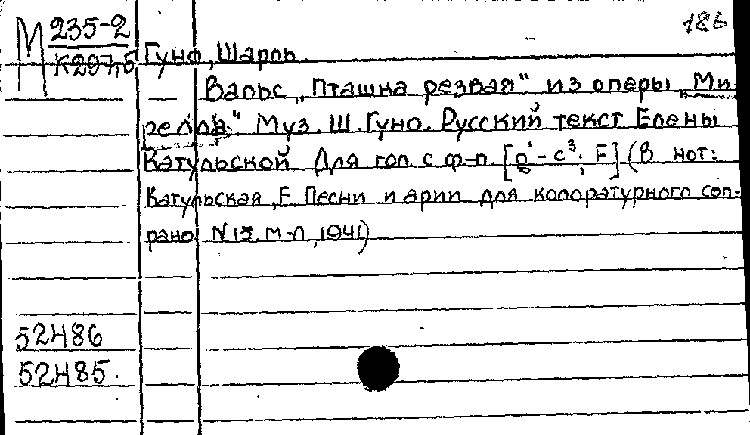 М 235-2
К297,5
186
Гуно, Шарль.
Вальс „Пташка резвая" из оперы „Ми-
релла". Муз. Ш. Гуно. Русский текст Елены
Катульской. Для гол. с ф-п. [d¹-c³; F] (В нот:
Катульская, Е. Песни и арии для колоратурного соп-
рано. N 12. М-Л, 1941)
52Н86
52Н85.